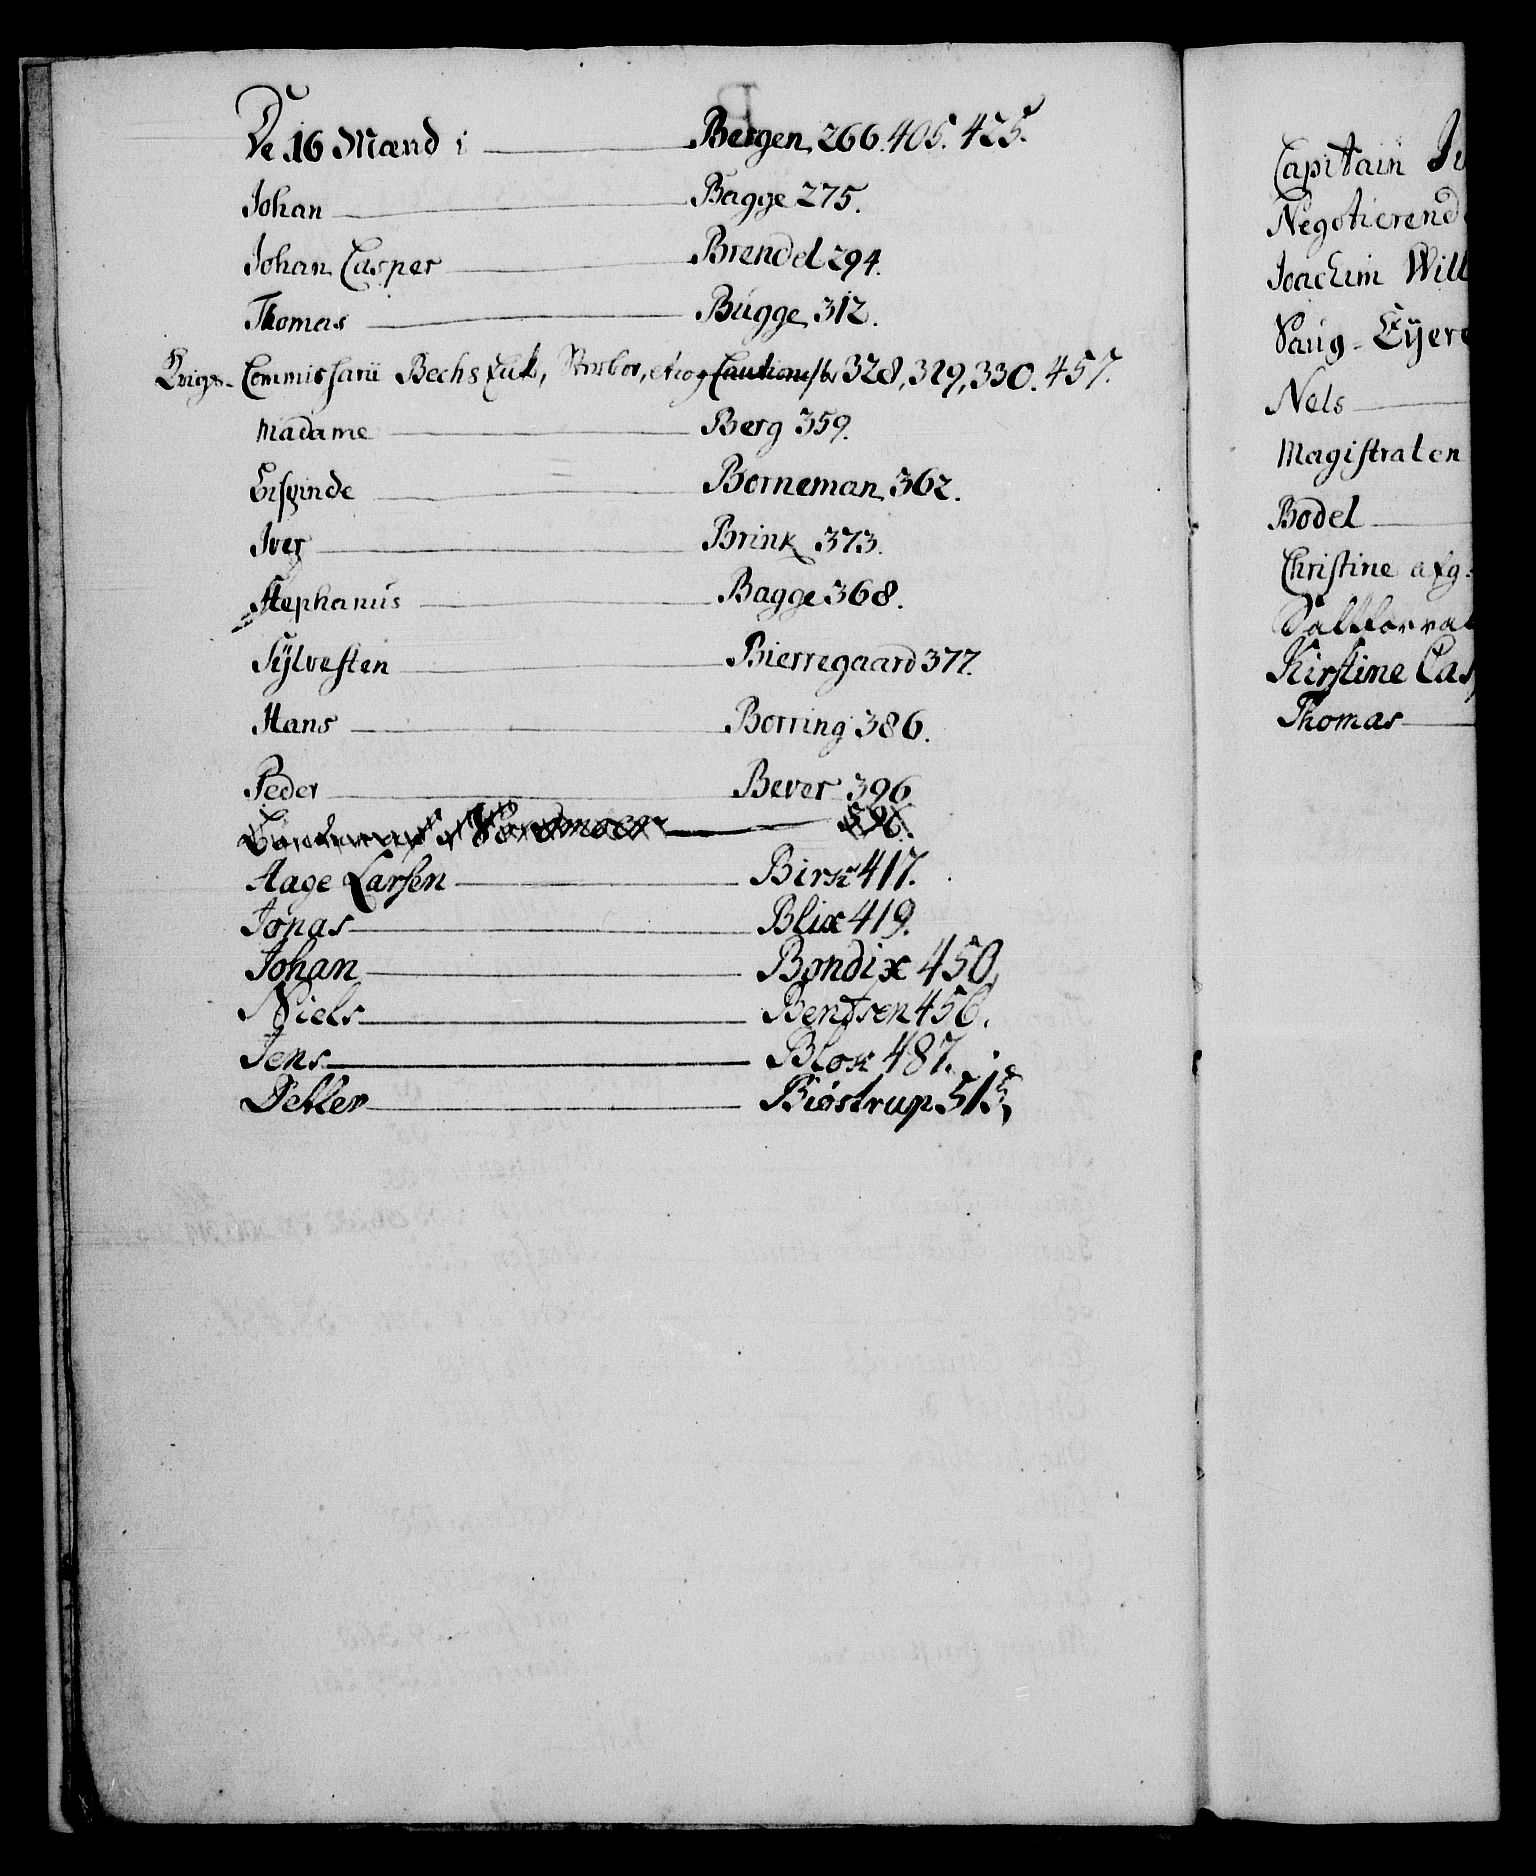 De 16 Mænd i Bergen 266. 405. 425.
Johan Bagge 275.
Johan Casper Brendel 294.
Thomas Bugge 312.
Krigs-Commissarii Bechs 328, 329, 330. 457.
Madame Berg 359.
Borneman 362.
Iver Brink 373.
Stephanus Bagge 368.
Sÿlvesten Bierregaard 377.
Hans Borring 386.
Peder Bever 396
596.
Aage Larsen Birk 417.
Jonas Blix 419.
Johan Bondix 450,
Niels Bendsen 456.
Jens Blok 487.
Detlev Biøstrup 515,
Capitain
Negotierend
Joachim Will
Nels
Magistraten
Bodel
Christine afg:
Kirstine Cas
Thomas